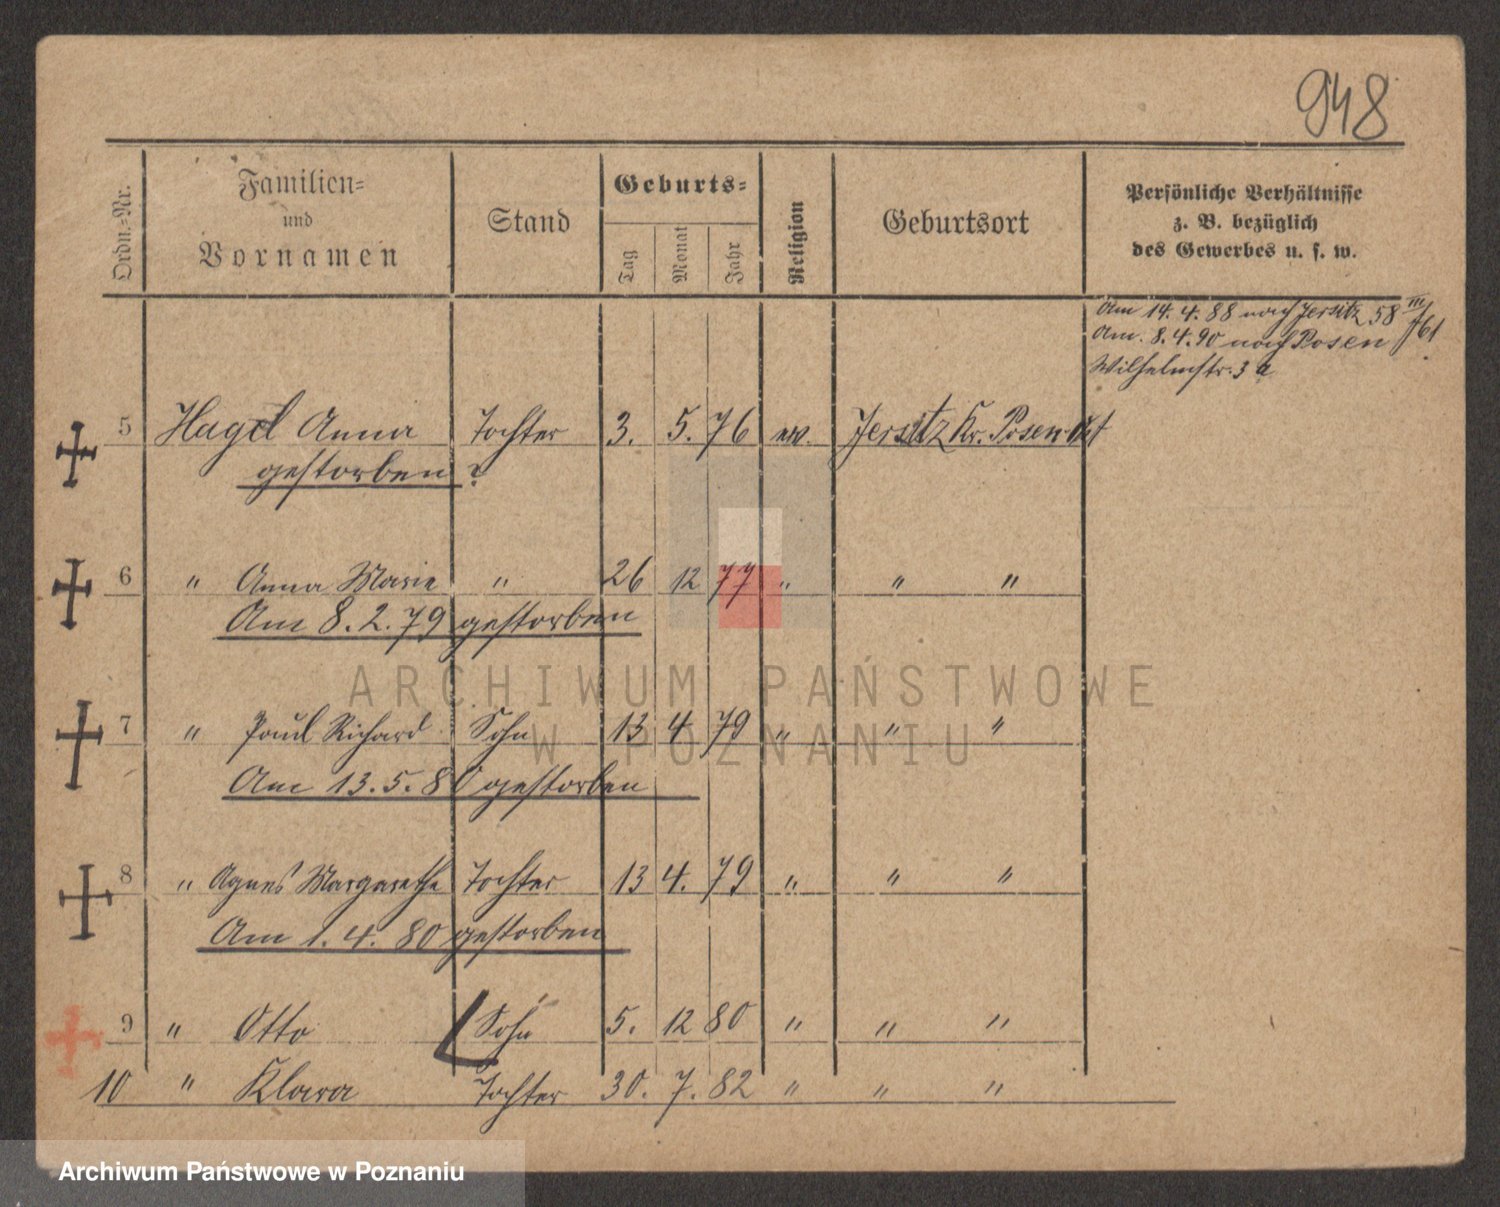 948
Ordn.-Nr.
Familien-
und
Vornamen
Stand
Geburts-
Tag
Monat
Jahr
Religion
Geburtsort
Persönliche Verhältnisse
z. B. bezüglich
des Gewerbes u. s. w.
Am 14.4.88 nach Jersitz 58 III/761
Am. 8.4.90 nach Posen
Wilhelmstr. 3 a
5 Hagel Anna Tochter 3. 5. 76 ev. Jersitz Kr. Posen Ost
gestorben ?
6 " Anna Marie " 26 12 77 " " "
Am 8.2.79 gestorben
7 " Paul Richard Sohn 13 4 79 " " "
Am 13.5.80 gestorben
8 " Agnes Margarethe Tochter 13 4. 79 " " "
Am 1.4.80 gestorben
9 " Otto Sohn 5. 12 80 " " "
10 " Klara Tochter 30. 7. 82 " " "
ARCHIWUM PAŃSTWOWE
W POZNANIU
Archiwum Państwowe w Poznaniu